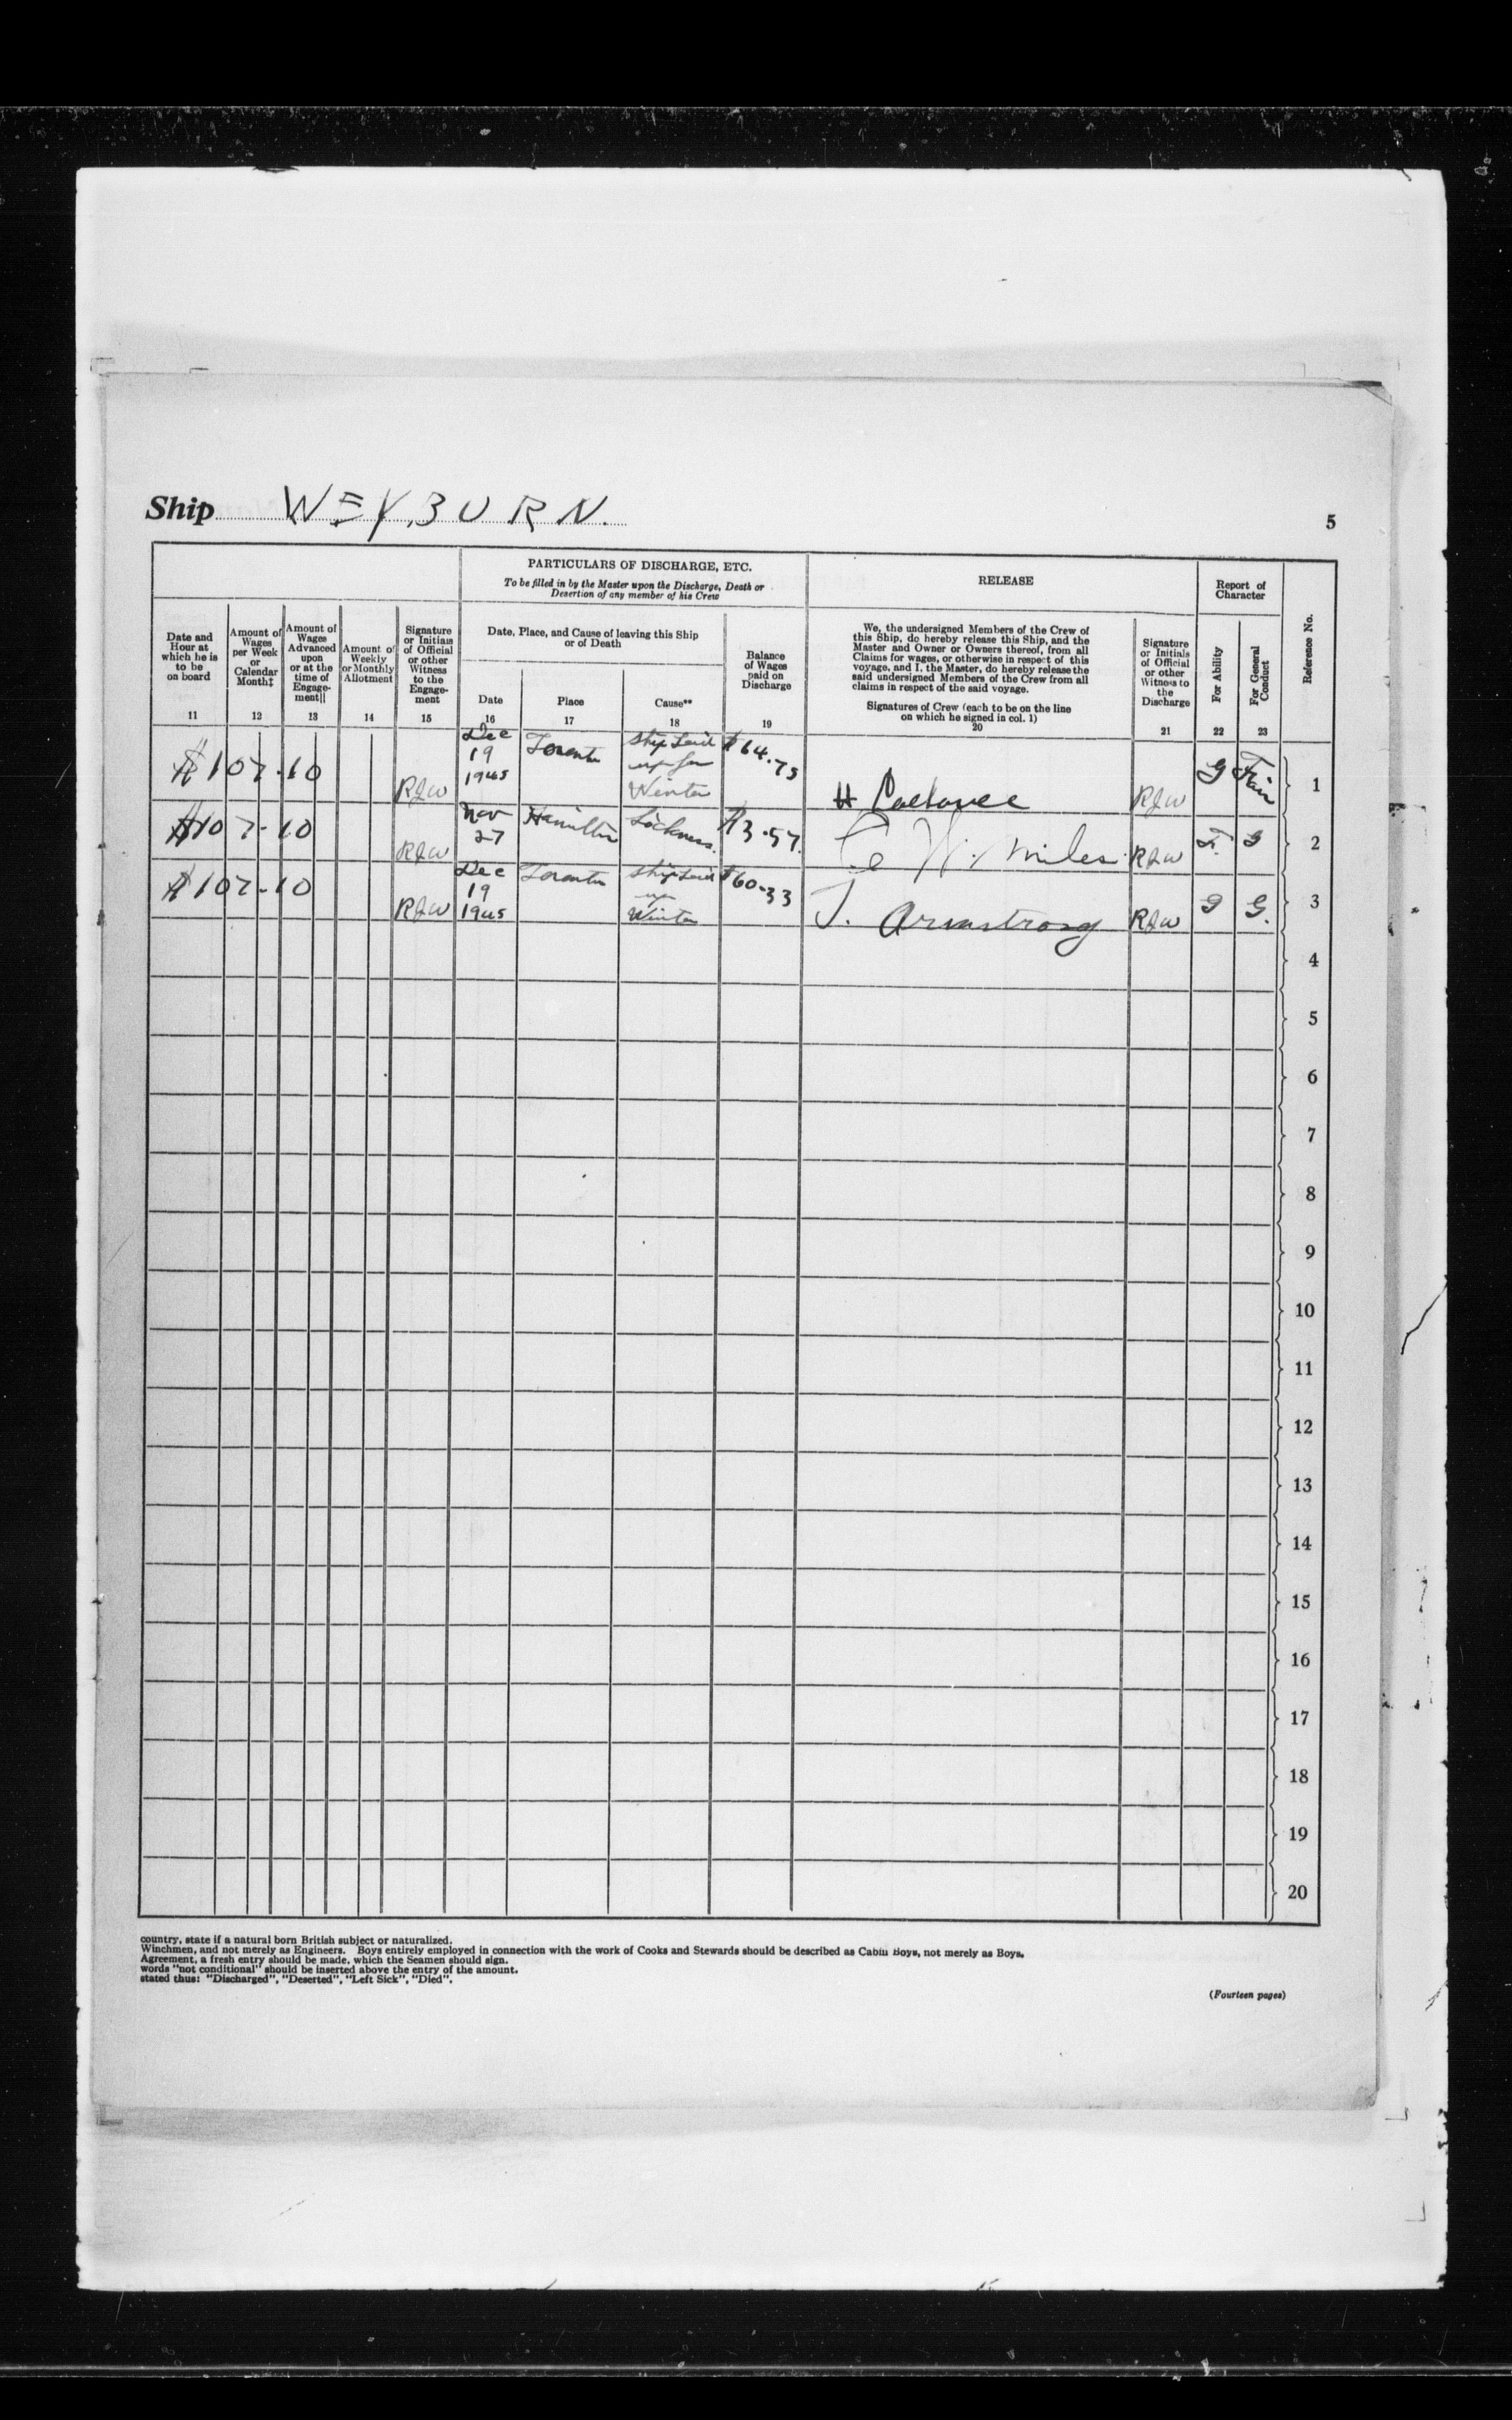 Ship WEYBURN.
5
PARTICULARS OF DISCHARGE, ETC.
To be filled in by the Master upon the Discharge, Death or
Desertion of any member of his Crew
RELEASE
Report of
Character
Reference No.
Date and
Hour at
which he is
to be
on board
11
Amount of
Wages
per Week
or
Calendar
Month‡
12
Amount of
Wages
Advanced
upon
or at the
time of
Engage-
ment||
13
Amount of
Weekly
or Monthly
Allotment
14
Signature
or Initials
of Official
or other
Witness
to the
Engage-
ment
15
Date, Place, and Cause of leaving this Ship
or of Death
Date
16
Place
17
Cause**
18
Balance
of Wages
paid on
Discharge
19
We, the undersigned Members of the Crew of
this Ship, do hereby release this Ship, and the
Master and Owner or Owners thereof, from all
Claims for wages, or otherwise in respect of this
voyage, and I, the Master, do hereby release the
said undersigned Members of the Crew from all
claims in respect of the said voyage.
Signatures of Crew (each to be on the line
on which he signed in col. 1)
20
Signature
or Initials
of Official
or other
Witness to
the
Discharge
21
For Ability
22
For General
Conduct
23
$107.10 RJW Dec 19 1945 Toronto Ship Laid up for Winter $64.75 H RJW G Fair 1
$107.10 RJW Nov 27 Hamilton Sickness. $3.57. W. Miles. RJW F. G 2
$107.10 RJW Dec 19 1945 Toronto Ship Laid up Winter $60.33 J. Armstrong RJW G G. 3
4
5
6
7
8
9
10
11
12
13
14
15
16
17
18
19
20
country, state if a natural born British subject or naturalized.
Winchmen, and not merely as Engineers. Boys entirely employed in connection with the work of Cooks and Stewards should be described as Cabin Boys, not merely as Boys.
Agreement, a fresh entry should be made, which the Seamen should sign.
words "not conditional" should be inserted above the entry of the amount.
stated thus: "Discharged", "Deserted", "Left Sick", "Died".
(Fourteen pages)